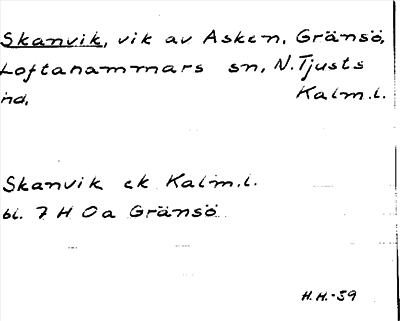 Skanvik, vik av Asken, Gränsö,
Loftahammars sn, N. Tjusts
hd, Kalm.l.
Skanvik ek Kalm.l.
bl. 7 H 0a Gränsö
H.H.-39